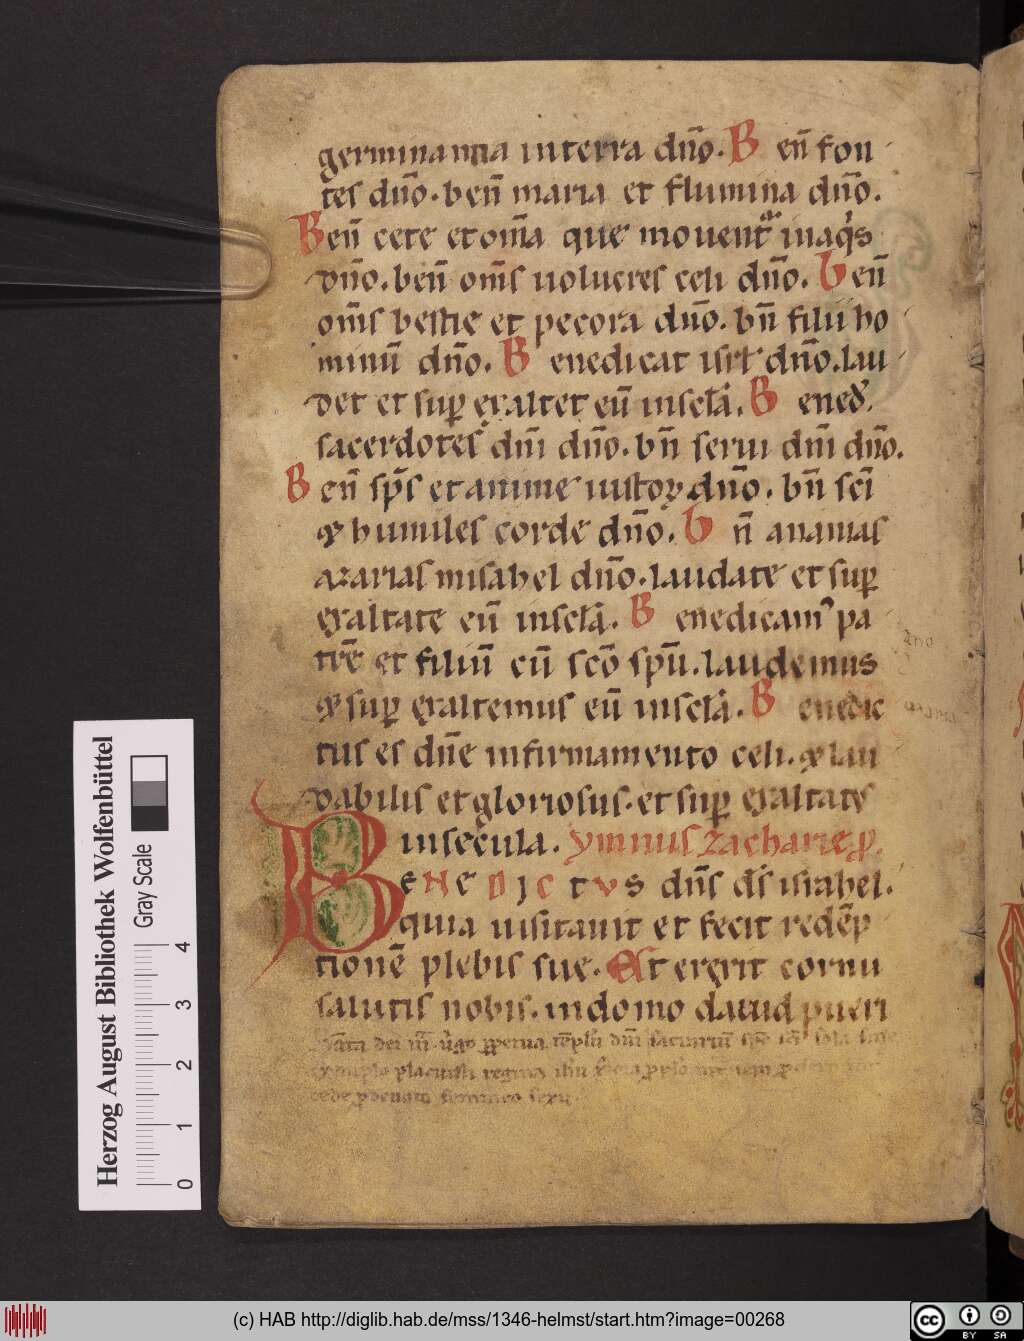 germinantia in terra dn̄o. B en̄ fon
tes dn̄o. ben̄ maria et flumina dn̄o.
Ben̄ cete et om̄a que mouent᷑ in aqͥs
dn̄o. ben̄ om̄s uolucres celi dn̄o. Ben̄
om̄s bestie et pecora dn̄o. bn̄ filii ho
minū dn̄o. B enedicat isrł dn̄o. lau
det et suꝑ exaltet eū in secła. B ened̄.
sacerdotes dn̄i dn̄o. bn̄ serui dn̄i dn̄o.
B en̄ sp̄s et anime iustoꝝ dn̄o. bn̄ sc̄i
& humiles corde dn̄o. B n̄ ananias
azarias misahel dn̄o. laudate et suꝑ
exaltate eū in secła. B enedicam᷒ pa
trē et filiū cū sc̄o sp̄u. laudemus
& suꝑ exaltemus eū in secła. B enedic
tus es dn̄e in firmamento celi. & lau
dabilis et gloriosus. et suꝑ exaltat᷒
in secula. ymnus zacharie ꝓ.
BENEDJCTVS dn̄s ds̄ israhel.
quia uisitauit et fecit redēp
tionē plebis sue. Et erexit cornu
salutis nobis. in domo dauid pueri
rede ꝓ deuoto femineo sexu
Herzog August Bibliothek Wolfenbüttel
Gray Scale
0 1 2 3 4
(c) HAB http://diglib.hab.de/mss/1346-helmst/start.htm?image=00268
cc BY SA